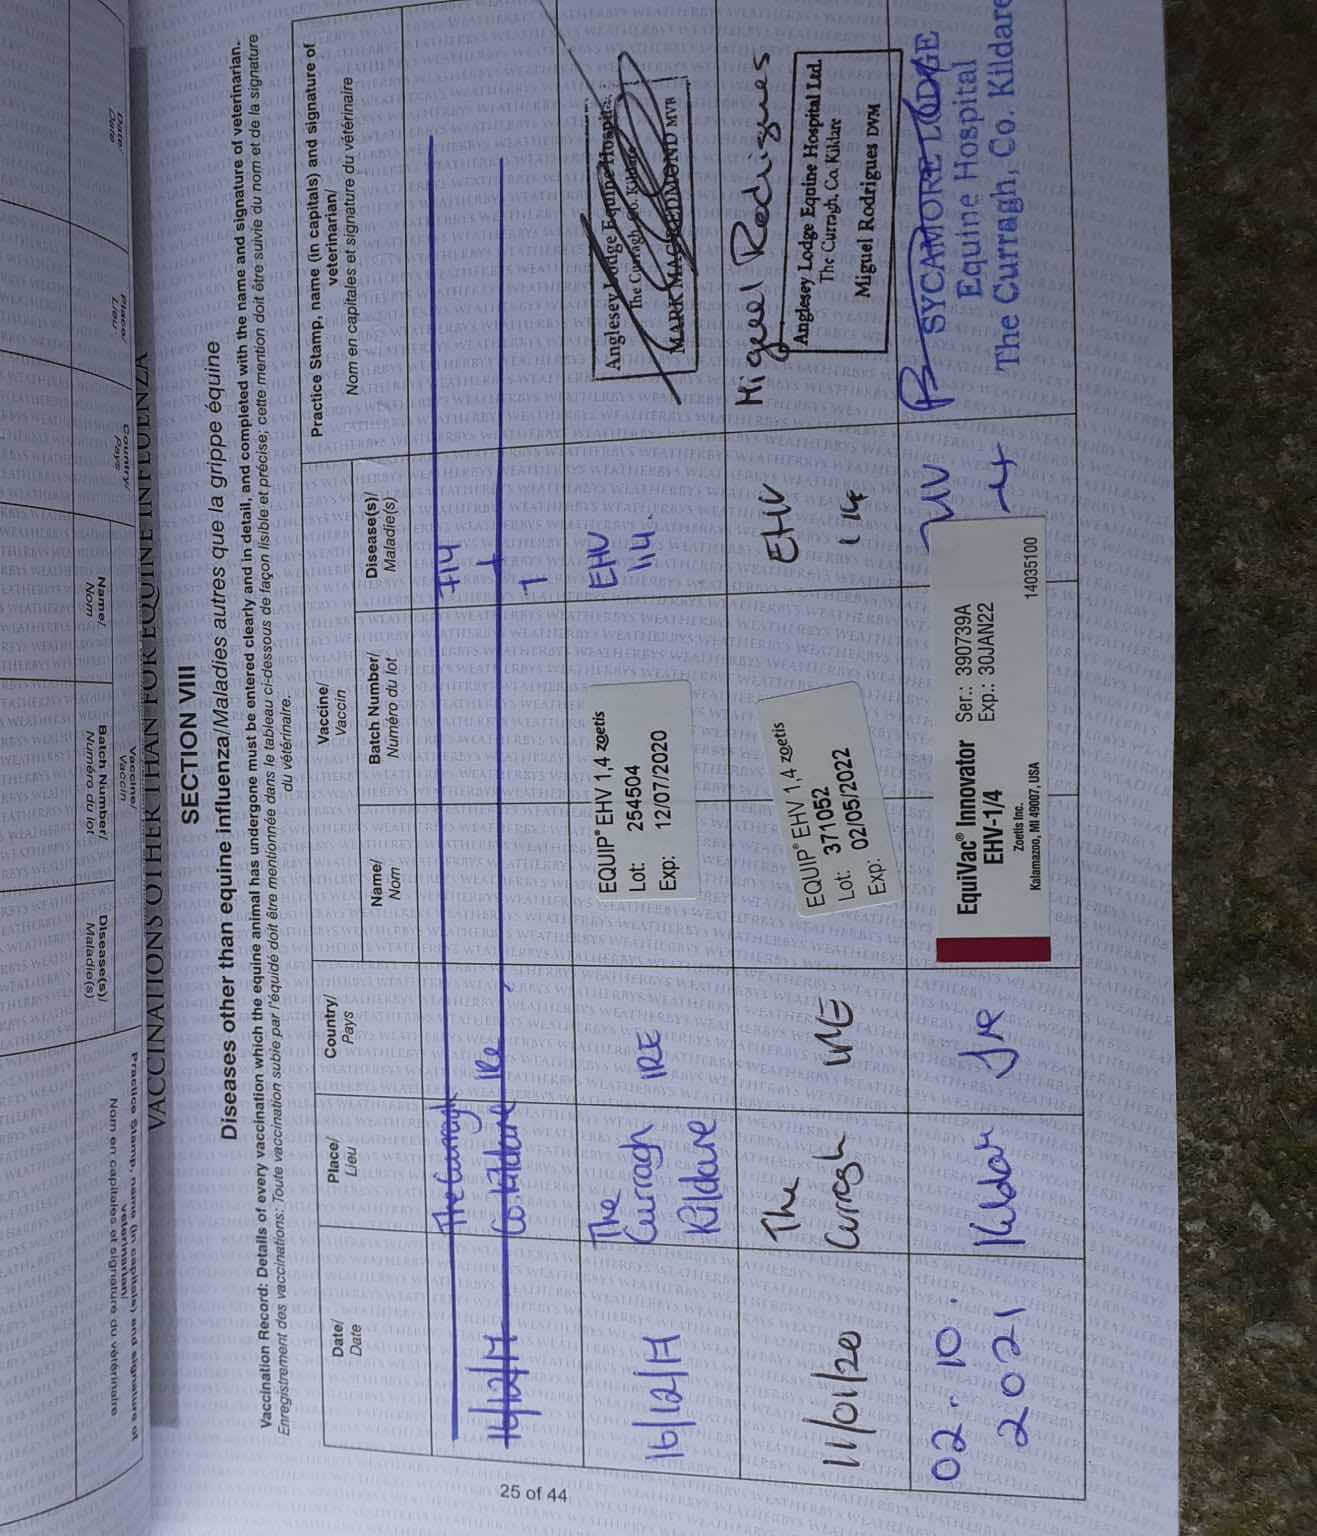 Date/
Date
Place/
Lieu
Country/
Pays
Name/
Nom
Vaccine/
Vaccin
Batch Number/
Numéro du lot
Disease(s)/
Maladie(s)
Practice Stamp, name (in capitals) and signature of
veterinarian/
Nom en capitales et signature du vétérinaire
VACCINATIONS OTHER THAN FOR EQUINE INFLUENZA
SECTION VIII
Diseases other than equine influenza/Maladies autres que la grippe équine
Vaccination Record: Details of every vaccination which the equine animal has undergone must be entered clearly and in detail, and completed with the name and signature of veterinarian.
Enregistrement des vaccinations: Toute vaccination subie par l'équidé doit être mentionnée dans le tableau ci-dessous de façon lisible et précise; cette mention doit être suivie du nom et de la signature
du vétérinaire.
Date/
Date
Place/
Lieu
Country/
Pays
Vaccine/
Vaccin
Name/
Nom
Batch Number/
Numéro du lot
Disease(s)/
Maladie(s)
Practice Stamp, name (in capitals) and signature of
veterinarian/
Nom en capitales et signature du vétérinaire
16/12/17
The Curragh
Co Kildare
IRe
16/12/17
The
Curragh
Kildare
IRE
EQUIP® EHV 1,4 zoetis
Lot: 254504
Exp: 12/07/2020
EHV
1,4.
Anglesey Lodge Equine Hospital
The Curragh, Co. Kildare
MARK MACREDMOND MVB
11/01/20
The
Curragh
IRE
EQUIP® EHV 1,4 zoetis
Lot: 371052
Exp: 02/05/2022
EHV
1,4
Miguel Rodrigues
Anglesey Lodge Equine Hospital Ltd.
The Curragh, Co. Kildare
Miguel Rodrigues DVM
02.10.
2021
Kildar
Ire
EquiVac® Innovator
EHV-1/4
Zoetis Inc.
Kalamazoo, MI 49007, USA
Ser.: 390739A
Exp.: 30JAN22
14035100
SYCAMORE LODGE
Equine Hospital
The Curragh, Co. Kildare
25 of 44